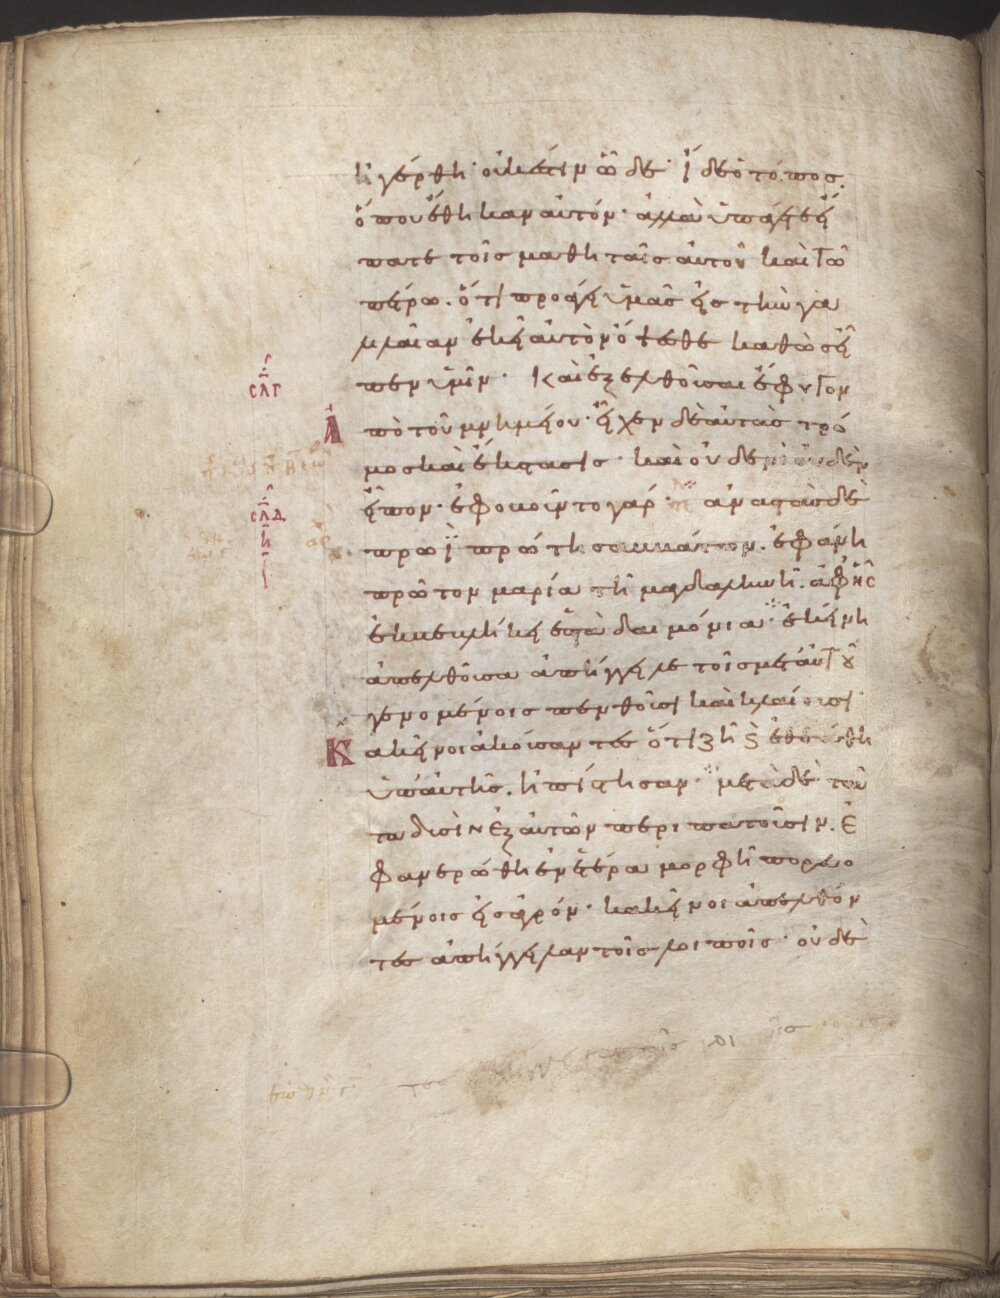 ἠγέρθη· οὐκἔστιν ὧδε· ἴδε ὁ τόπος.
ὅπου ἔθηκαν αὐτόν· ἀλλὰ ὑπάγετε εἴ
πατε τοῖς μαθηταῖς αὐτοῦ καὶ τῶ
πέτρω. ὅτι προάγει ὑμᾶς εἰς τὴν γα
λιλαίαν ἐκεῖ αὐτὸν ὄψεσθε καθὼς εἶ
πεν ὑμῖν· Καὶ ἐξελθοῦσαι ἔφυγον
σλγ
ἀ
πὸ τοῦ μνημείου· εἶχεν δὲ αὐτὰς τρό
μος καὶ ἔκστασις· καὶ οὐδενὶ οὐδὲν
εἶπον· ἐφοβοῦντο γάρ· ἀναστὰς δὲ
σλδ
πρωῒ πρώτη σαββάτου. ἐφάνη
πρῶτον μαρία τῆ μαγδαληνῆ. ἀφ ἧς
ἐκβεβλήκει ἑπτὰ δαιμόνια· ἐκείνη
ἀπελθοῦσα ἀπήγγειλε τοῖς μετ αὐτοῦ
γενομένοις πενθοῦσι καὶ κλαίουσι·
Κ
ἀκεῖνοι ἀκούσαντες ὅτι ζῆ ϗ ἐθεάθη
ὑπ αὐτῆς. ἠπίστησαν· μετὰ δὲ ταῦ
τα δυσὶν ἐξ αὐτῶν περιπατοῦσιν. ἐ
φανερώθη ἐν ἑτέρα μορφῆ πορευο
μένοις εἰς ἀγρόν· κἀκεῖνοι ἀπελθόν
τες ἀπήγγειλαν τοῖς λοιποῖς· οὐδὲ